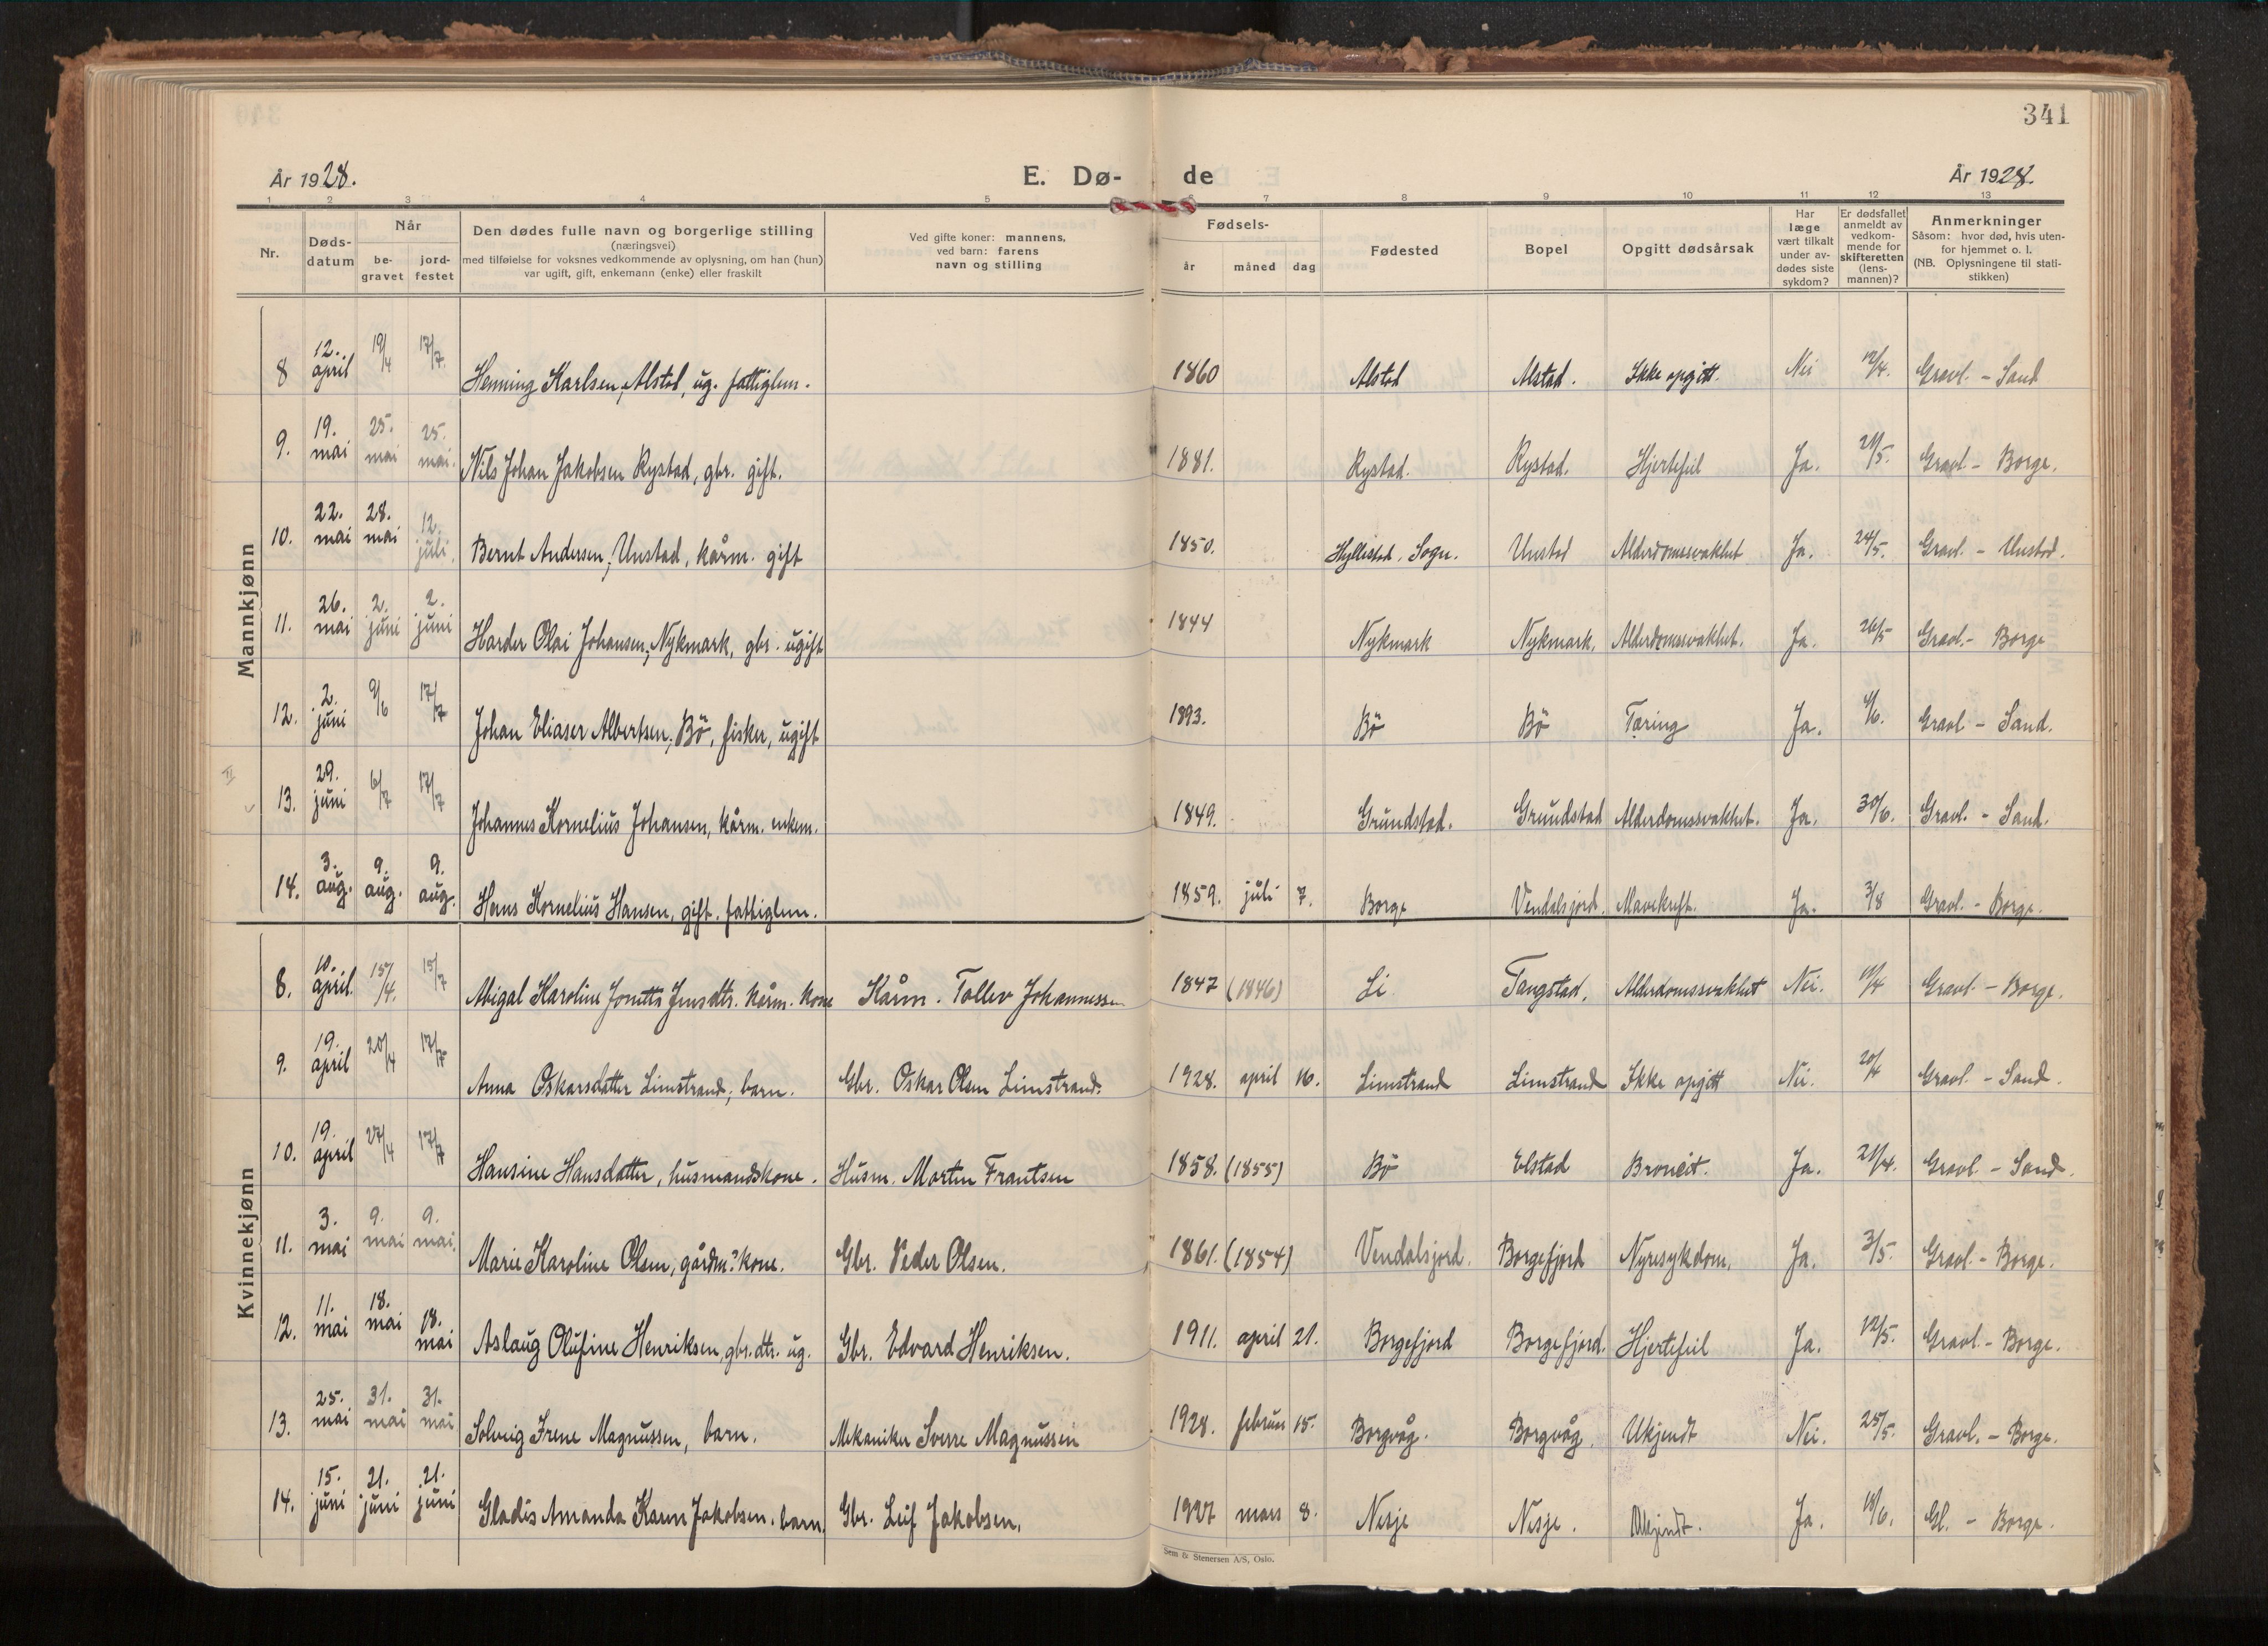 341
År 1928.
E. Dø- de
År 1928.
1 2 3 4 5 7 8 9 10 11 12 13
Nr.
Døds-
datum
Når
be-
gravet
jord-
festet
Den dødes fulle navn og borgerlige stilling
(næringsvei)
med tilføielse for voksnes vedkommende av oplysning, om han (hun)
var ugift, gift, enkemann (enke) eller fraskilt
Ved gifte koner: mannens,
ved barn: farens
navn og stilling
Fødsels-
år måned dag
Fødested
Bopel
Opgitt dødsårsak
Har
læge
vært tilkalt
under av-
dødes siste
sykdom?
Er dødsfallet
anmeldt av
vedkom-
mende for
skifteretten
(lens-
mannen)?
Anmerkninger
Såsom: hvor død, hvis uten-
for hjemmet o. l.
(NB. Oplysningene til stati-
stikken)
Mannkjønn
8 12. april 19/4 17/7 Henning Karlsen, Alstad, ug. fattiglem. 1860 Alstad Alstad. Ikke opgitt. Nei 12/4. Gravl. - Sand
9. 19. mai 25. mai 25. mai. Nils Johan Jakobsen Rystad, gbr. gift. 1881. Rystad. Rystad. Hjertefeil Ja. 21/5. Gravl - Borge.
10. 22. mai 28. mai 12. juli. Bernt Andersen, Unstad, kårm. gift 1850. Hyllestad. Sogn. Unstad Alderdomssvakhet Ja. 24/5. Gravl. - Unstad.
11. 26. mai 2. juni 2. juni Harder Olai Johansen, Nykmark, gbr. ugift 1844 Nykmark Nykmark. Alderdomssvakhet. Ja. 26/5 Gravl. - Borge
12. 2. juni 9/6 17/7 Johan Eliaser Albertsen, Bö, fisker, ugift 1893. Bö Bö Tæring Ja. 4/6. Gravl - Sand.
13. 29. juni 6/7 17/7 Johannes Kornelius Johansen, kårm. enkem. 1849. Grundstad. Grundstad Alderdomssvakhet. Ja. 30/6. Gravl. - Sand.
14. 3. aug. 9. aug. 9. aug. Hans Kornelius Hansen, gift. fattiglem. 1859. juli 7. Borge Vendalsjord. Mavekreft. Ja. 3/8 Gravl. - Borge.
Kvinnekjønn
8. 10. april. 15/4. 15/7 Abigal Karoline Jensdtr. kårm. kone Kårm. Tollev Johannessen 1847 (1846) Li Tangstad. Alderdomssvakhet Nei. 11/4 Gravl. - Borge.
9. 19. april 20/4 17/7 Anna Oskarsdatter Limstrand; barn. Gbr. Oskar Olsen Limstrand. 1928. april 16. Limstrand Limstrand Ikke opgitt Nei. 20/4 Gravl. - Sand.
10. 19. april 27/4 17/7 Hansine Hansdatter, husmandskone. Husm. Morten Frantsen 1858. (1855) Bö Elstad Broncit. Ja. 21/4. Gravl. - Sand.
11. 3. mai 9. mai 9. mai. Marie Karoline Olsen, gårdm. kone. Gbr. Peder Olsen. 1861. (1854) Vendalsjord. Borgefjord Nyresykdom. Ja. 3/5. Gravl. - Borge.
12. 11. mai 18. mai 18. mai Aslaug Olufine Henriksen, gbr. dtr. ug. Gbr. Edvard Henriksen. 1911. april 21. Borgefjord Borgefjord. Hjertefeil Ja. 12/5. Gravl. - Borge.
13. 25. mai 31. mai 31. mai Solveig Irene Magnussen, barn. Mekaniker Sverre Magnussen 1928. februar 15. Borgvåg. Borgvåg. Ukjendt Nei. 25/5. Gravl. - Borge.
14. 15. juni 21. juni 21. juni Gladis Amanda Karen Jakobsen. barn. Gbr. Leif Jakobsen. 1927 mars 8. Nesje Nesje. Ukjendt. Ja. 18/6. Gl. - Borge.
Sem & Stenersen A/S, Oslo.